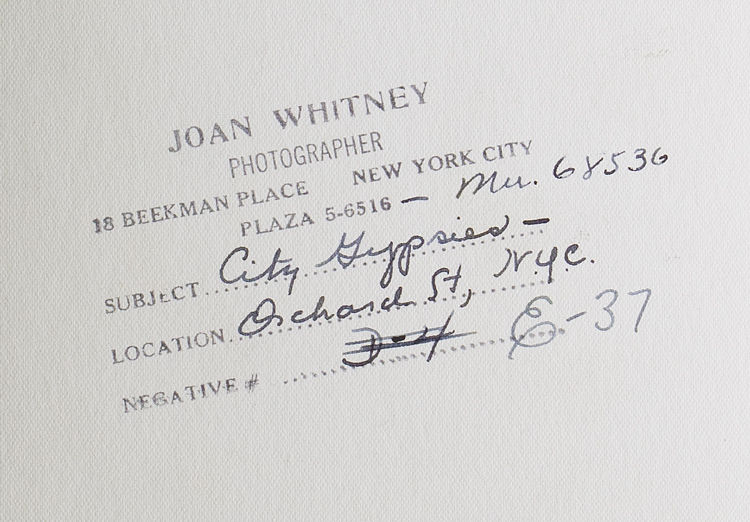 JOAN WHITNEY
PHOTOGRAPHER
18 BEEKMAN PLACE NEW YORK CITY
PLAZA 5-6516 — Mu. 68536
SUBJECT City Gypsies —
LOCATION Orchard St, NYC.
NEGATIVE # D-4 E-37